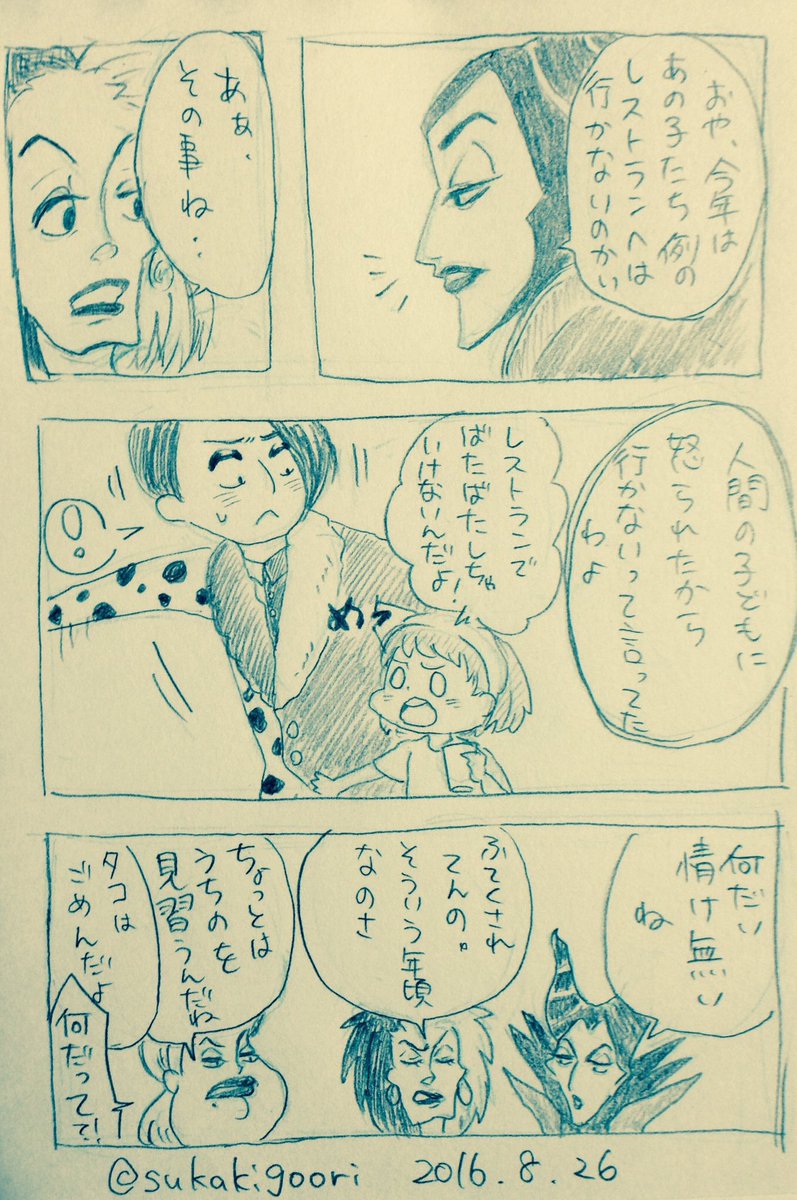 おや、今年は
あの子たち例の
レストランへは
行かないのかい
あぁ、
その事ね・・
人間の子どもに
怒られたから
行かないって言ってた
わよ
レストランで
ばたばたしちゃ
いけないんだよ!
めら
何だい
情け無い
ね
ふてくされ
てんの。
そういう年頃
なのさ
ちょっとは
うちのを
見習うんだね
タコは
ごめんだよ
何だって?!
@sukakigoori 2016.8.26